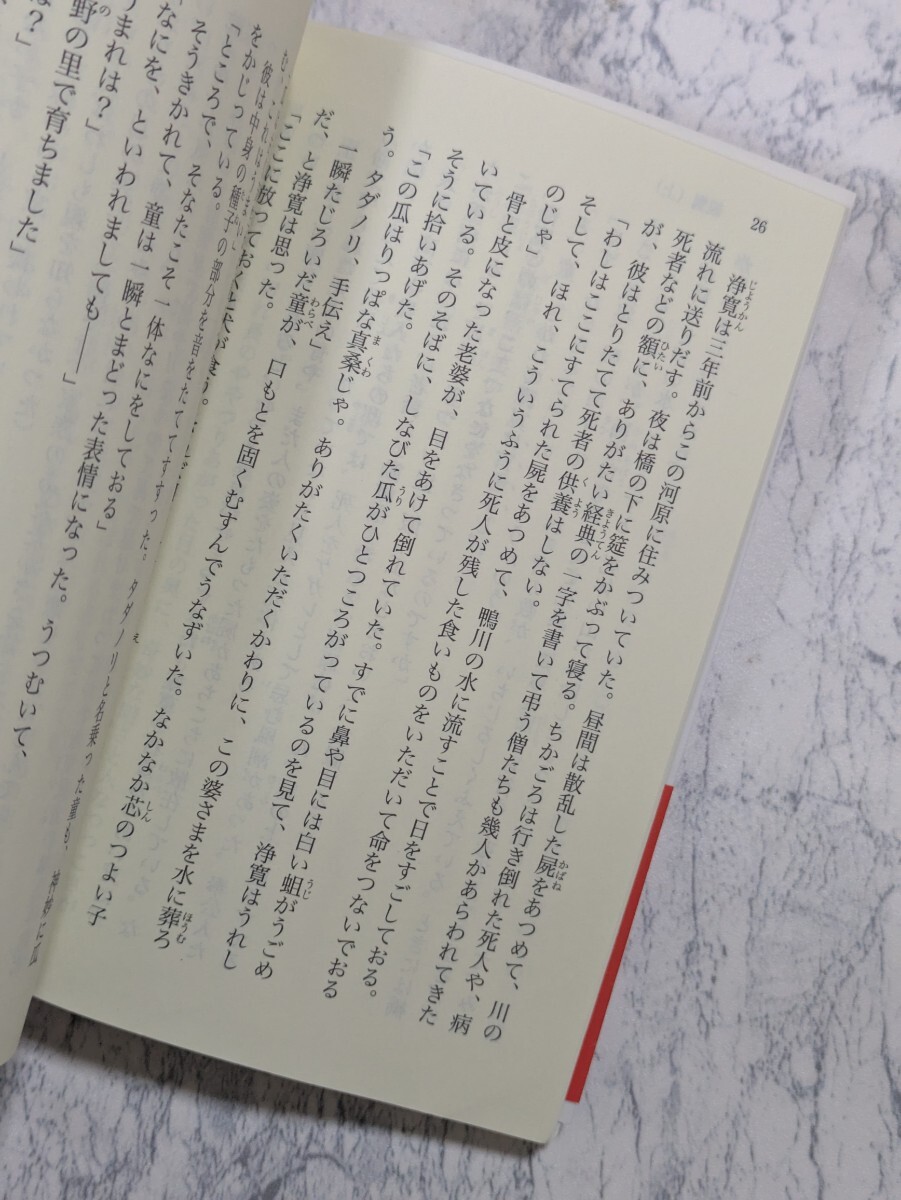 26
浄寛は三年前からこの河原に住みついていた。昼間は散乱した屍をあつめて、川の
流れに送りだす。夜は橋の下に筵をかぶって寝る。ちかごろは行き倒れた死人や、病
死者などの額に、ありがたい経典の一字を書いて弔う僧たちも幾人かあらわれてきた
が、彼はとりたてて死者の供養はしない。
「わしはここにすてられた屍をあつめて、鴨川の水に流すことで日をすごしておる。
そして、ほれ、こういうふうに死人が残した食いものをいただいて命をつないでおる
のじゃ」
骨と皮になった老婆が、目をあけて倒れていた。すでに鼻や目には白い蛆がうごめ
いている。そのそばに、しなびた瓜がひとつころがっているのを見て、浄寛はうれし
そうに拾いあげた。
「この瓜はりっぱな真桑じゃ。ありがたくいただくかわりに、この婆さまを水に葬ろ
う。タダノリ、手伝え」
一瞬たじろいだ童が、口もとを固くむすんでうなずいた。なかなか芯のつよい子
だ、と浄寛は思った。
「ここに放っておくと犬が
彼は中身の種子の部分を音をたててすすった。タダノリと名乗った童も、
をかじっている。
「ところで、そなたこそ一体なにをしておる」
そうきかれて、童は一瞬とまどった表情になった。うつむいて、
なにを、といわれましても――」
うまれは？」
野の里で育ちました」
は？」